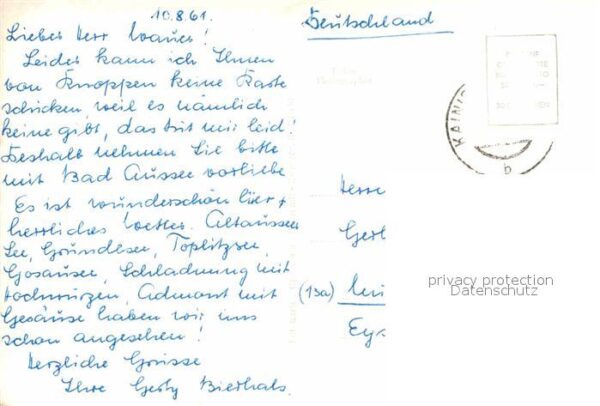 10.8.61.
Lieber Herr Wauer!
Leider kann ich Ihnen
von Knoppen keine Karte
schicken weil es nämlich
keine gibt, das tut mir leid!
Deshalb nehmen Sie bitte
mit Bad Aussee vorliebe
Es ist wunderschön hier +
herrliches Wetter. Altausseer
See, Grundlsee, Toplitzsee,
Gosausee, Schladming mit
Hochwurzen, Admont mit
Gesäuse haben wir uns
schon angesehen!
Herzliche Grüsse
Ihre Gerty Bierhals.
Deutschland
KAINI
b
Herrn
Gerh
(13a) Mü
Ey
privacy protection
Datenschutz